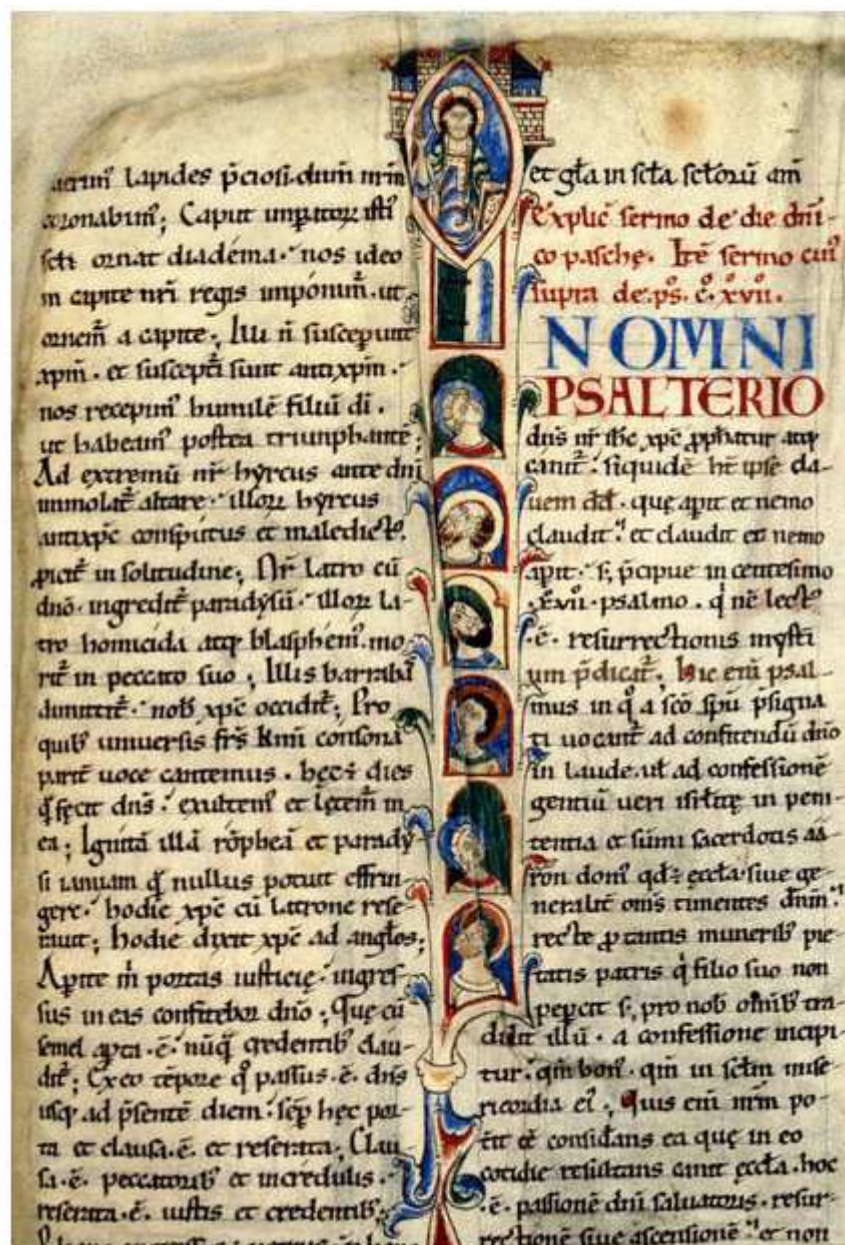 lapides p̄ciosi. dum̄ nr̄m
coronabimꝰ; Caput imꝑatoꝝ isti
scl̄i ornat diadéma. nos ideo
in capite nr̄i regis imponim̄. ut
ornem̄ a capite; Illi n̄ susceꝑunt
xp̄m. et suscepti sunt antixp̄m.
nos recepimꝰ humilē filiū dī.
ut habeamꝰ postea triunphantē;
Ad extremū nr̄ hyrcus ante dn̄i
immolat̄ altare. illoꝝ hyrcus
antixp̄c consputus et maledictꝰ.
ꝓicit̄ in solitudine; Nr̄ latro cū
dn̄o ingredit̄ paradysū. illoꝝ la-
tro homicida atqꝫ blasphemꝰ. mo
rit̄ in peccato suo; Illis barrabā
dimittit̄. nob̄ xp̄c occidit̄; Pro
quibꝰ universis fr̄s km̄i consona
parit̄ uoce cantemus. hęc ē dies
q̄ fęcit dn̄s. exultemꝰ et lętem̄ in
ea; Ignitā illā rōpheā et parady
si ianuam q̄ nullus potuit effrin-
gere. hodie xp̄c cū latrone rese-
rauit; hodie dixit xp̄c ad angłos;
Aꝑite m̄ portas iusticię. ingres-
sus in eas confitebor dn̄o; Quę cū
semel aꝑta .ē. nūq̄ credentibꝰ clau-
dit̄; Ex eo tēpore qͦ passus .ē. dn̄s
usqꝫ ad p̄sentē diem. sēp hęc por-
ta et clausa .ē. et reserata; Clau-
sa .ē. peccatoribꝰ et incredulis.
reserata .ē. iustis et credentibꝰ;
et gl̄a in scl̄a scl̄orū am̄
Explic̄ sermo de die dn̄i-
co paschę. Itē sermo cuiꝰ
supra de. ps. c̊. x̊v̊ii.
N OMNI
PSALTERIO
dn̄s nr̄ ihc xp̄c ꝓphatur atqꝫ
canit̄. siquidē hē ipse cla-
uem dd̄. que aꝑit et nemo
claudit. et claudit et nemo
aꝑit. s; p̄cipue in centesimo
.xvii. psalmo. qͥ nē lectꝰ
.ē. resurrectionis mysti
um p̄dicat̄. hic enī psal-
mus in qͦ a scō spū p̄signa
ti uocant̄ ad confitendū dn̄o
in laude. uł ad confessionē
gentiū ueri isrłitę in peni
tentia et sūmi sacerdotis aa-
ron domꝰ qd̄ ē ęccl̄a. siue ge-
neralit̄ om̄s timentes dn̄m.
recte ꝓ tantis muneribꝰ pie-
tatis patris qͥ filio suo non
peꝑcit s; pro nob̄ om̄ibꝰ tra-
didit illū. a confessione incipi
tur. qm̄ bonꝰ. qm̄ in sclm̄ mise-
ricordia eiꝰ; Quis enī nr̄m po-
t̄it eē considans ea quę in eo
cotidie resultans canit ęccl̄a. hoc
.ē. passionē dn̄i saluatoris. resur-
rectionē siue ascensionē. et non